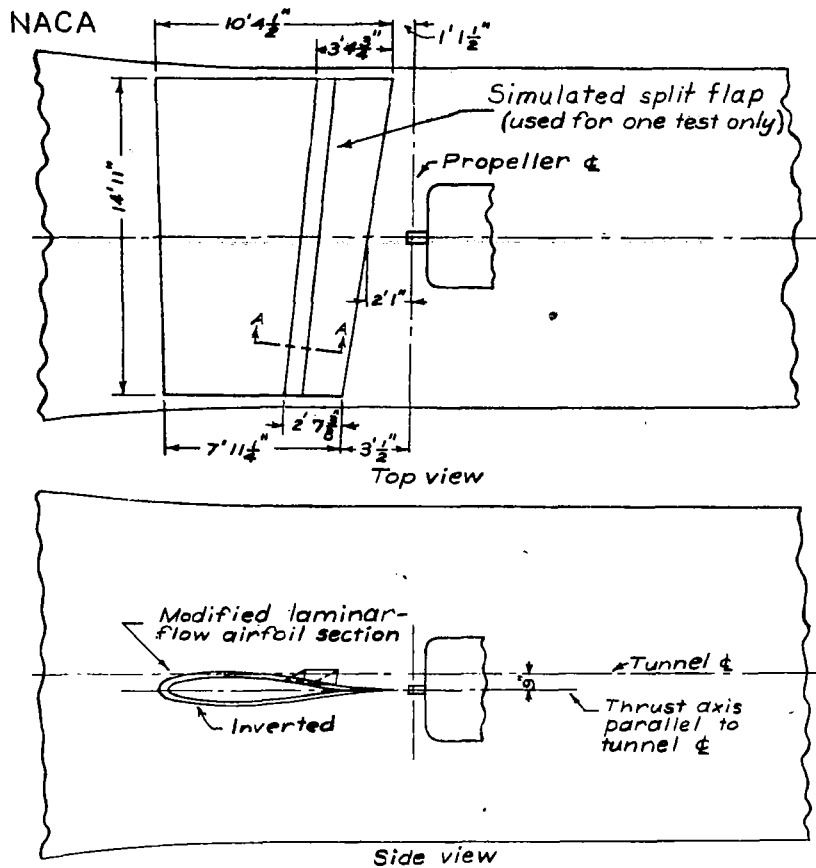 NACA
10' 4 1/2"
1' 1 1/2"
3' 4 3/4"
Simulated split flap
(used for one test only)
Propeller ℄
14' 11"
2' 1"
A
A
2' 7 3/8"
7' 11 1/4"
3' 1/2"
Top view
Modified laminar-
flow airfoil section
Tunnel ℄
9"
Inverted
Thrust axis
parallel to
tunnel ℄
Side view